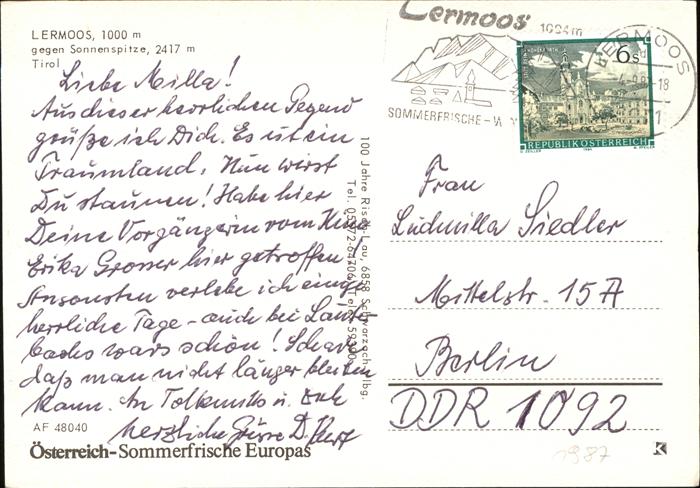 LERMOOS, 1000 m
gegen Sonnenspitze, 2417 m
Tirol
Liebe Milla!
Aus dieser herrlichen Gegend
grüße ich Dich. Es ist ein
Traumland. Nun wirst
Du staunen! Habe hier
Deine Vorgängerin vom Kino
Erika Grosser hier getroffen
Ansonsten verlebe ich einige
herrliche Tage - auch bei Lauter
bachs wars schön! Schade
daß man nicht länger bleiben
kann. An Tolkmitts u.
herzliche Grüsse D.
AF 48040
Österreich-Sommerfrische Europas
100 Jahre Risch-Lau, 6858 Schwarzach, Vlbg.
Lermoos
1004 m
SOMMERFRISCHE - W
LERMOOS
-18
6 S
REPUBLIK ÖSTERREICH
Frau
Ludmilla Siedler
Mittelstr. 15A
Berlin
DDR 1092
1987